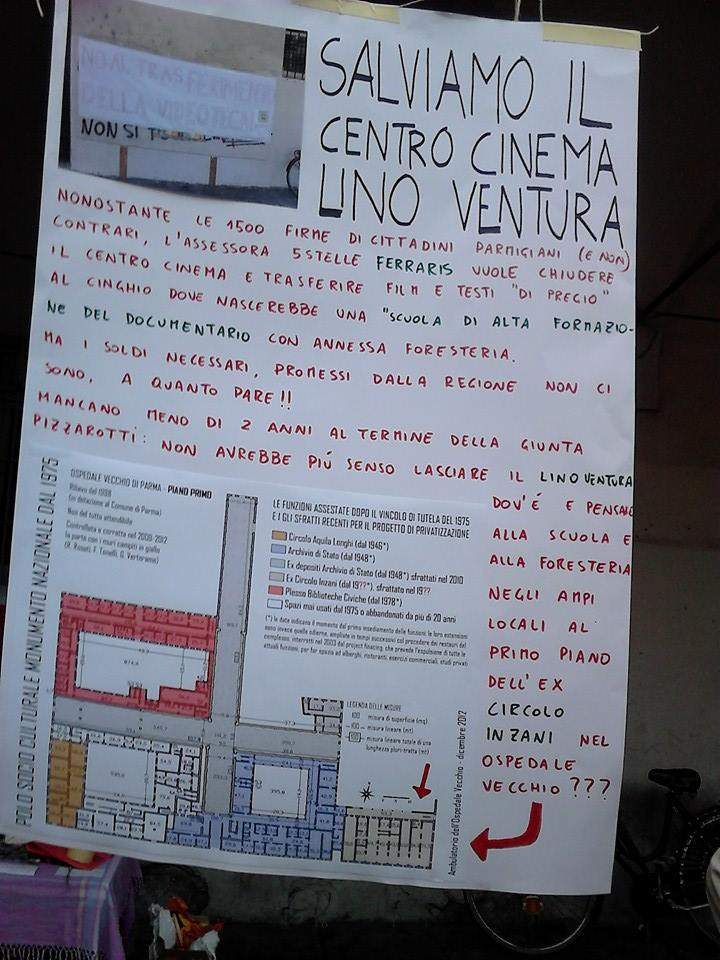 NO AL TRASFERIMENTO
DELLA VIDEOTECA
NON SI
SALVIAMO IL
CENTRO CINEMA
LINO VENTURA
NONOSTANTE LE 1500 FIRME DI CITTADINI PARMIGIANI (E NON)
CONTRARI, L'ASSESSORA 5STELLE FERRARIS VUOLE CHIUDERE
IL CENTRO CINEMA E TRASFERIRE FILM E TESTI "DI PREGIO"
AL CINGHIO DOVE NASCEREBBE UNA "SCUOLA DI ALTA FORMAZIO-
NE DEL DOCUMENTARIO CON ANNESSA FORESTERIA.
MA I SOLDI NECESSARI, PROMESSI DALLA REGIONE NON CI
SONO, A QUANTO PARE!!
MANCANO MENO DI 2 ANNI AL TERMINE DELLA GIUNTA
PIZZAROTTI: NON AVREBBE PIÚ SENSO LASCIARE IL LINO VENTURA
DOV'É E PENSARE
ALLA SCUOLA E
ALLA FORESTERIA
NEGLI AMPI
LOCALI AL
PRIMO PIANO
DELL'EX
CIRCOLO
INZANI NEL
OSPEDALE
VECCHIO ???
POLO SOCIO CULTURALE MONUMENTO NAZIONALE DAL 1975
OSPEDALE VECCHIO DI PARMA - PIANO PRIMO
Rilievo del 1998
(in dotazione al Comune di Parma)
Non del tutto attendibile
Controllata e corretta nel 2009-2012
la parte con i muri campiti in giallo
LE FUNZIONI ASSESTATE DOPO IL VINCOLO DI TUTELA DEL 1975
E I GLI SFRATTI RECENTI PER IL PROGETTO DI PRIVATIZZAZIONE
Circolo Aquila Longhi (dal 1946*)
Archivio di Stato (dal 1948*)
Ex depositi Archivio di Stato (dal 1948*) sfrattati nel 2010
Ex Circolo Inzani (dal 19??*), sfrattato nel 19??
Plesso Biblioteche Civiche (dal 1978*)
Spazi mai usati dal 1975 o abbandonati da più di 20 anni
(*) le date indicano il momento del primo insediamento delle funzioni, le loro estensioni
sono invece quelle odierne, ampliate in tempi successivi col procedere dei restauri del
complesso, interrotti nel 2003 dal project financing, che prevede l'espulsione di tutte le
attuali funzioni, per far spazio ad alberghi, ristoranti, esercizi commerciali, studi privati
LEGENDA DELLE MISURE
misura di superficie (mq)
misura lineare (mt)
misura lineare totale di una
lunghezza pluri-tratta (mt)
Ambulatorio dell'Ospedale Vecchio - dicembre 2012